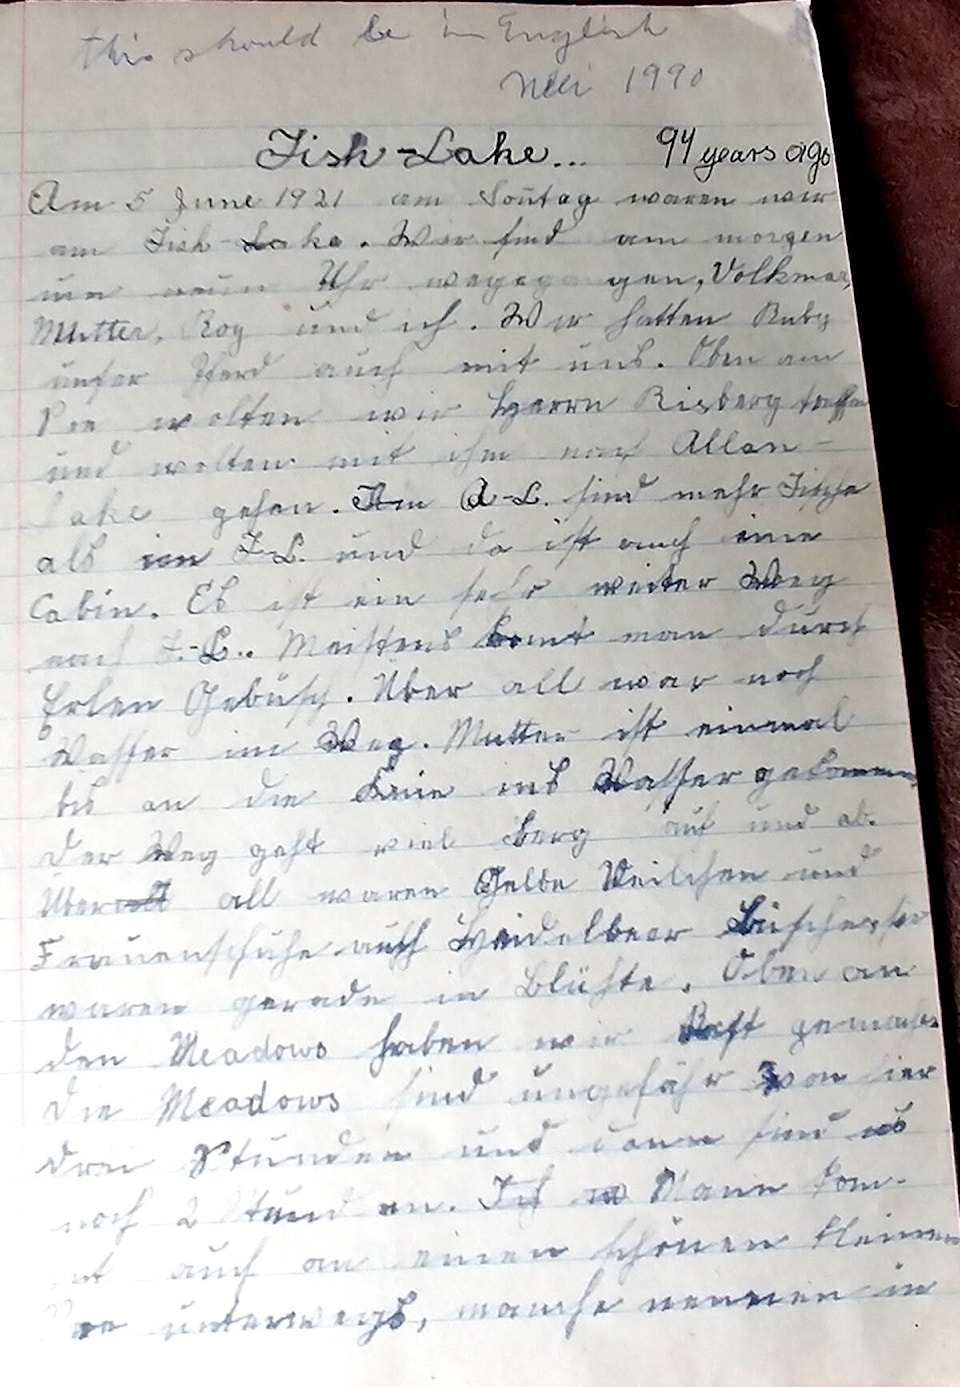 this should be in English
1990
Fish-Lake... 94 years ago
Am 5 June 1921 am Sontag waren wir
am Fish Lake. Wir sind am morgen
um neun Uhr wegegangen, Volkmar,
Mutter, Roy und ich. Wir hatten Ruby
unser Pferd auch mit uns. Oben am
See wolten wir Herrn Risberg treffen
und wolten mit ihm nach Allan-
Lake gehen. Am A-L. sind mehr Fische
als im F-L. und da ist auch eine
Cabin. Es ist ein sehr weiter Weg
nach F.-L.. Meistens komt man durch
Erlen Gebüsch. Über all war noch
Wasser im Weg. Mutter ist einmal
bis an die Knie ins Wasser gekommen.
Der Weg geht viel berg auf und ab.
Über all waren Gelbe Veilchen und
Frauenschuhe auch Heidelbeer Büsche, sie
waren gerade in Blühte. Oben an
den Meadows haben wir Rast gemacht.
Die Meadows sind ungefähr von hier
drei Stunden und dann sind es
noch 2 Stunden. Mann kom-
mt auch an einen schönen kleinen
See unterwegs, manche nennen in